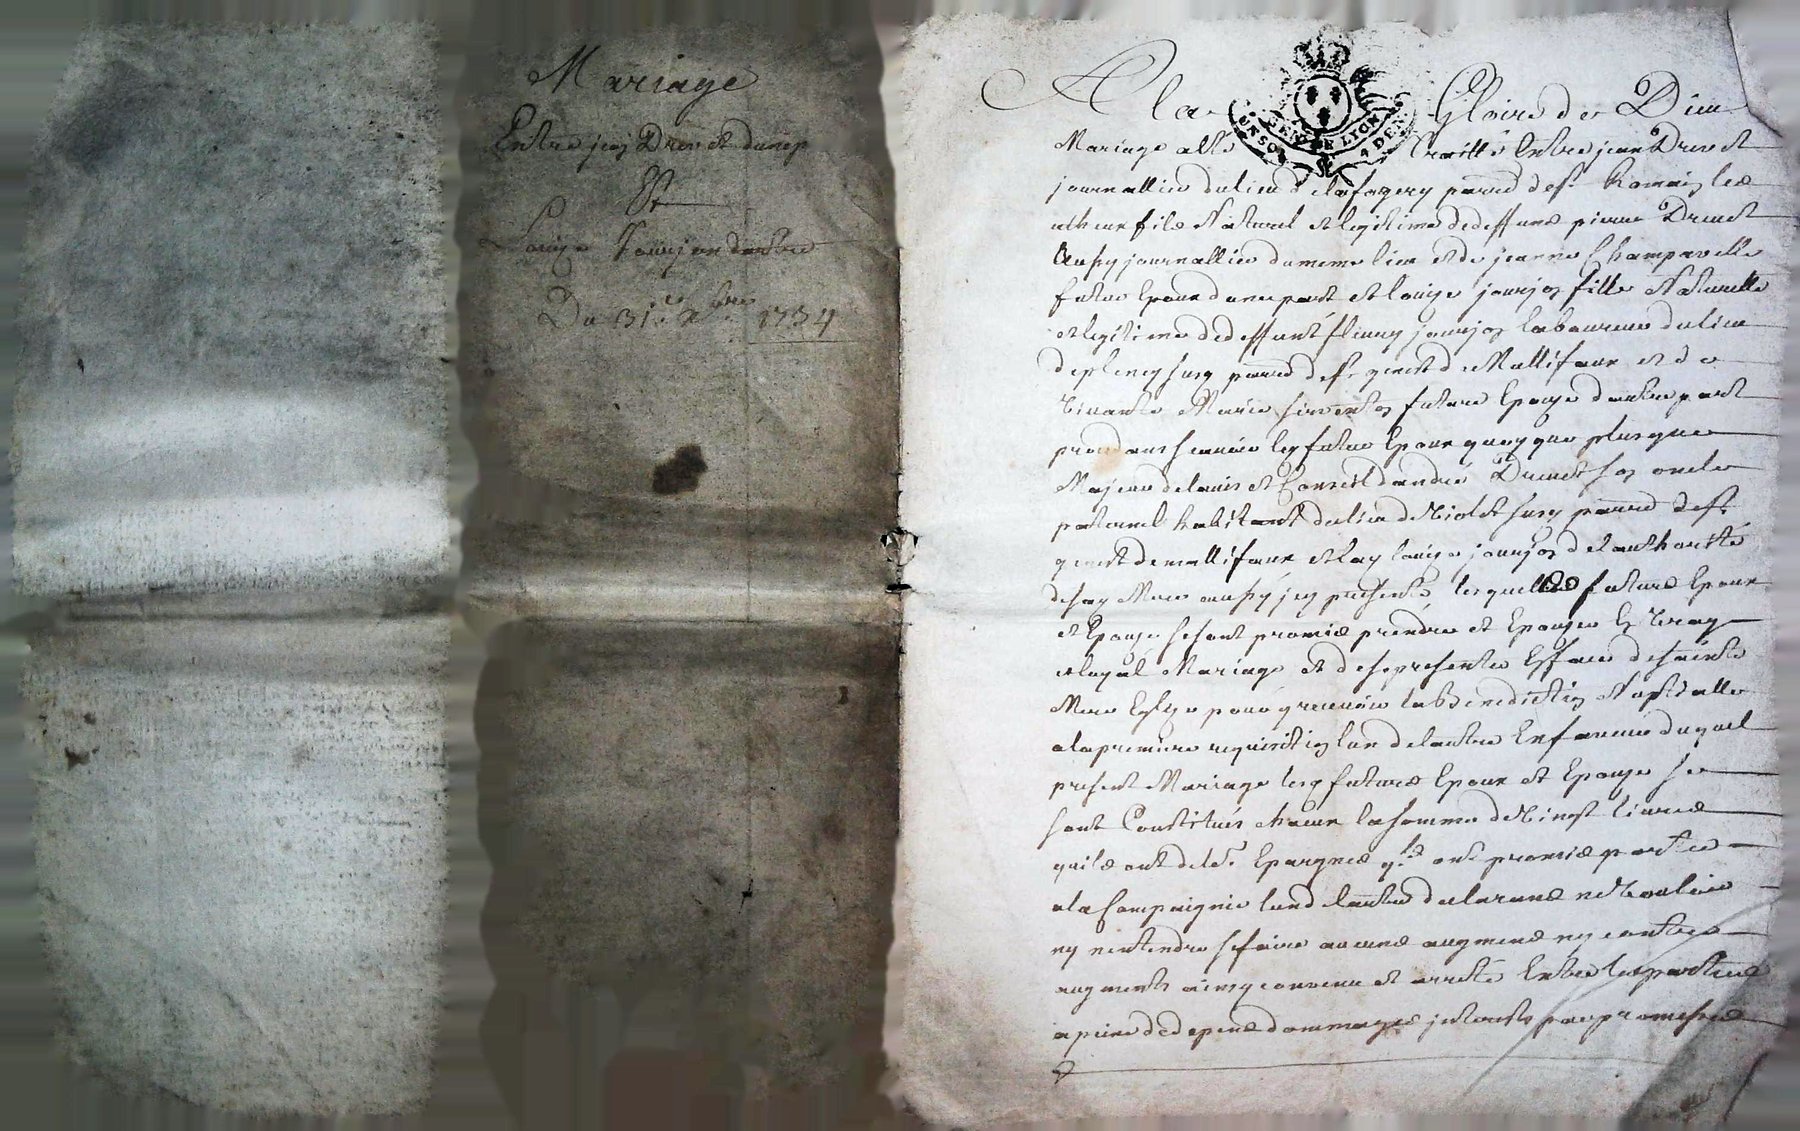 Mariage
Entre jean Drevet dunep
Et
Louize Jouvjon dautre
Du 31.e xbre 1734
A la Gloire de Dieu
GEN. DE LYON
4 DEN
Mariage a esté Traitté Entre jean Drevet
journallier du lieu de lafayery parro.e de st. Romain les
atheux fils Naturel et legitime de deffunt pierre Drevet
Aussy journallier du meme lieu et de jeanne Champavelle
futur Epoux dunepart et louize jouvjon fille Naturelle
et legitime de deffunt fleury jouvjon laboureur du lieu
parro.e de st. genest de Mallifaux et de
Vivante Marie future Epouze dautre part
procedants sçavoir les futur Epoux quoy que plus que
Majeur de lavis et Conseil dandré Drevet son oncle
paternel habitant du lieu de parro.e de st.
genest de mallifaux et lad. louize jouvjon de lauthorité
de sa Mere aussy jcy presente lesquelles futurs Epoux
et Epouze se sont promis prendre et Epouzer En vray
et loyal Mariage et de se presenter Efface de sainte
Mere Eglize pour y recevoir la Benediction Nuptialle
a la premiere requisition lun de lautre En faveur duquel
present Mariage lesq. futurs Epoux et Epouze se
sont Constitués chacun la somme de Vingt livres
quils ont de leurs Epargnes q.ls ont promis porter
a la Compaignie lun de lautre declarants ne Vouloir
ny nentendre se faire aucuns augments ny contre
augments ainsy convenu et arresté Entre les parties
a peine de depens dommages jnterests par promesses